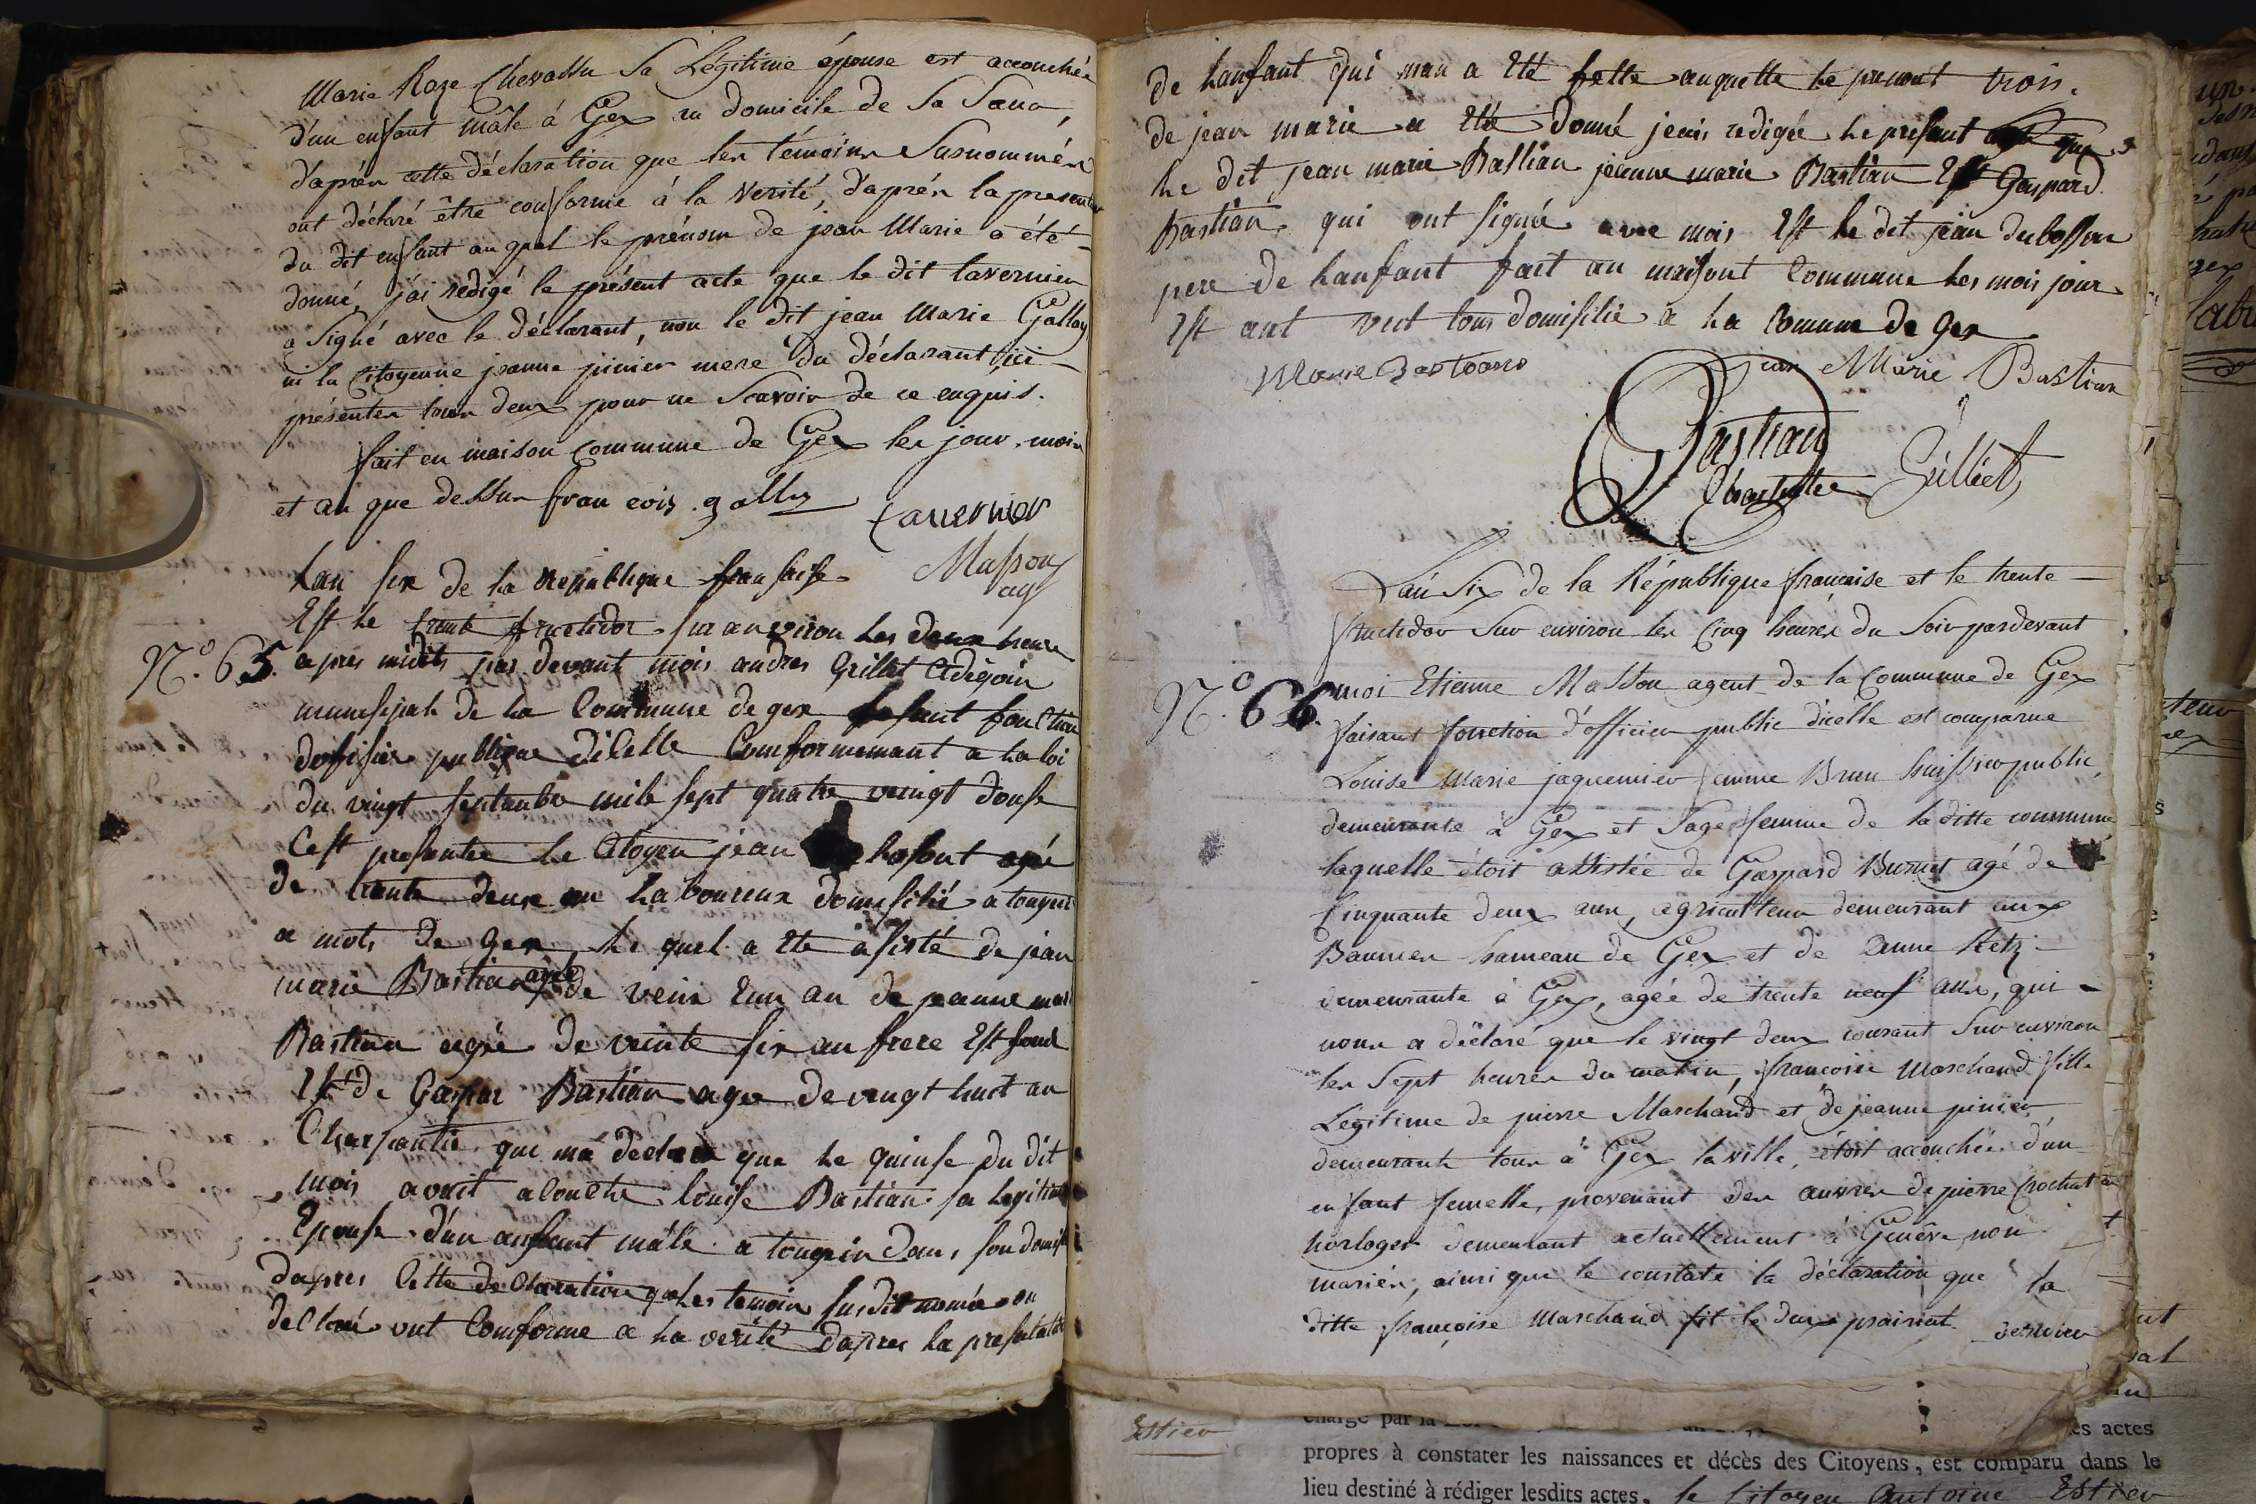 Marie Roze Chevassu Sa Légitime épouse est accouchée
d'un enfant mâle à Gex au domicile de Sa Sœur,
d'après cette déclaration que les témoins Susnommés
ont déclaré être conforme à la Verité, d'après la presentation
du dit enfant au quel le prénom de jean Marie a été
donné, j'ai redigé le présent acte que le dit tavernier
a Signé avec le déclarant, non le dit jean Marie Gallay
ni la Citoyenne jeanne pinier mere du déclarant, ici
présenter tous deux pour ne Scavoir de ce enquis.
fait en maison Commune de Gex les jour, mois
et an que dessus fran cois gallay
tavernier
Masson
ag
Lan six de la Republique fransaise
Est he trente fructidor sur anviron les deux heure
N.º 65. apres midits par devant mois andres Grillet Adigoin
munesipah de ha Commune de gex fesant fonction
dofisier publique dicelle Comformemant a ha loi
du vingt septanbre mile sept quatre veingt douse
Cest presantee he Citoyen jean dubosont agé
de trente deux an haboureur domisilié a tougin
a mots de gex he quel a ete asisté de jean
marie Bastian agé de veint Eun an de jeanne marie
Bastian agée de veinte six an frere Est seur
Est de Gaspar Bastian age de veingt huit an
Charpantié que ma declare que he quinse du dit
mois avait acouche louise Bastian sa hegitime
Epouse d'un anfant mâle a tougin dans son domisile
dapres Cette declaration que hes temoin susdit nomée on
declaré vut Comforme a ha verité dapres ha presantation
de hanfant qui man a Eté fette auquelle he prenont trois.
de jean marie a Eté donné jeais redigée he presant
he dit jean marie Bastian jeanne marie Bastian Est Gaspard
Bastian, qui ont signée avec mois Est he dit jean dubosson
pere de hanfant fait au maisont Commune hes mois jour
Est ant vut tous domisilié a ha Comune de gex
Marie Bastians
jean Marie Bastian
Bastian
Charpentier
Grillet
L'an Six de la République française et le trente
fructidor Sur environ les Cinq heures du Soir pardevant
N.º 66. moi Etienne Masson agent de la Commune de Gex
faisant fonction d'officier public d'icelle est comparue
Louise Marie jaquemier femme Brun huissier public,
demeurante à Gex et Sage femme de ladite commune
laquelle étoit assistée de Gaspard Burnet agé de
Cinquante deux ans, agriculteur demeurant aux
Baumes hameau de Gex et de anne
demeurante à Gex, agée de trente neuf ans, qui
nous a déclaré que le vingt deux courant Sur environ
les Sept heures du matin, françoise Marchand fille
Légitime de pierre Marchand et de jeanne pinier,
demeurante tous à Gex la ville, étoit accouchée d'un
enfant femelle, provenant des œuvres de pierre Crochat
horloger demeurant actuellement à Genêve, non
mariés, ainsi que le constate la déclaration que la
ditte françoise Marchand fit le deux prairial dernier
propres à constater les naissances et décès des Citoyens, est comparu dans le
lieu destiné à rédiger lesdits actes, le Citoyen Antoine Estier